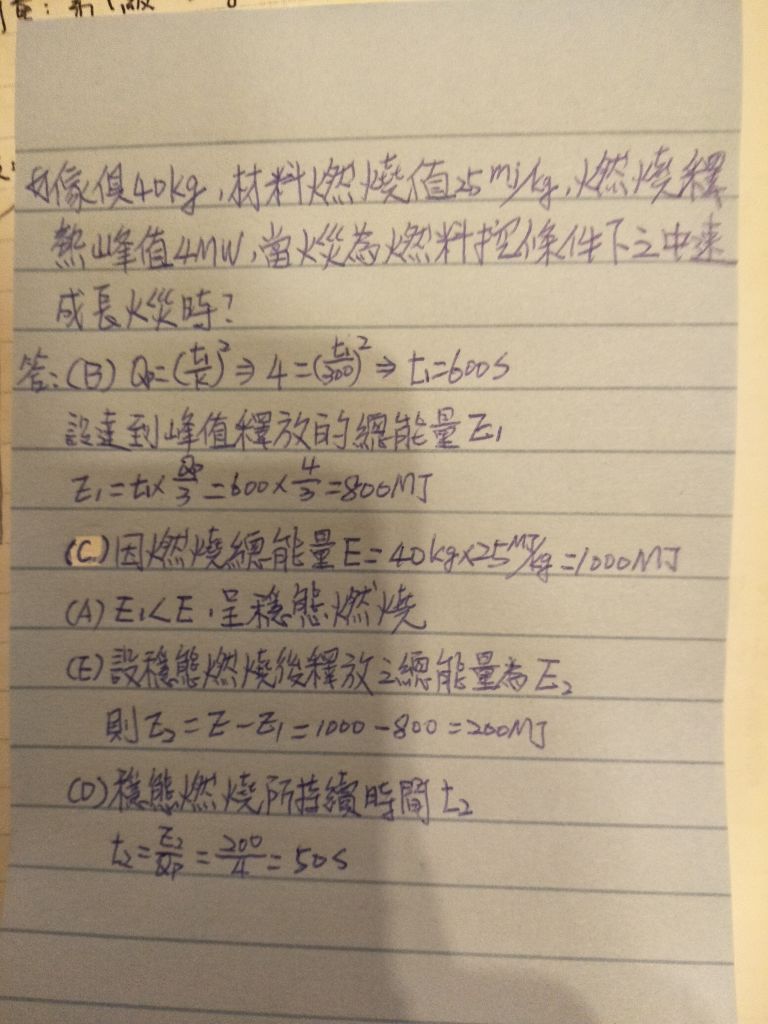 傢俱40kg,材料燃燒值25MJ/kg,燃燒釋
熱峰值4MW,當火災為燃料控條件下之中速
成長火災時?
答:(B) Qp=(t₁/k)²⇒4=(t₁/300)²⇒t₁=600s
設達到峰值釋放的總能量E₁
E₁=t₁×Qp/3=600×4/3=800MJ
(C)因燃燒總能量E=40kg×25MJ/kg=1000MJ
(A)E₁<E,呈穩態燃燒
(E)設穩態燃燒後釋放之總能量為E₂
則E₂=E-E₁=1000-800=200MJ
(D)穩態燃燒所持續時間t₂
t₂=E₂/Qp=200/4=50s